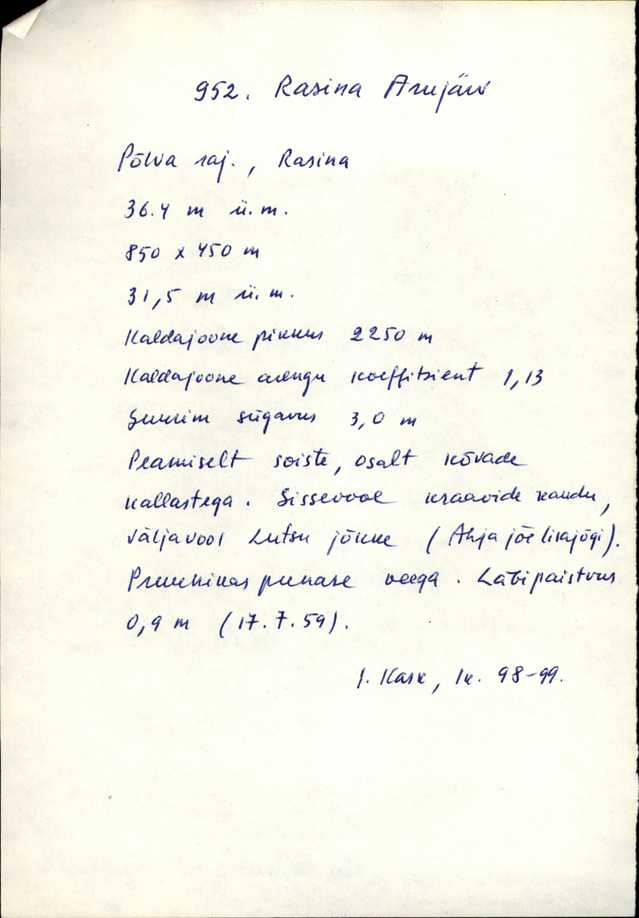 952. Rasina Arujärv
Põlva raj., Rasina
36.4 m ü.m.
850 x 450 m
31,5 m ü.m.
Kaldajoone pikkus 2250 m
Kaldajoone arengu koeffitsient 1,13
Suurim sügavus 3,0 m
Peamiselt soiste, osalt kõvade
kallastega. Sissevool kraavide kaudu,
väljavool Lutsu jõkke (Ahja jõe lisajõgi).
Pruunikas punase veega. Läbipaistvus
0,9 m (17.7.59).
I. Kask, lk. 98-99.